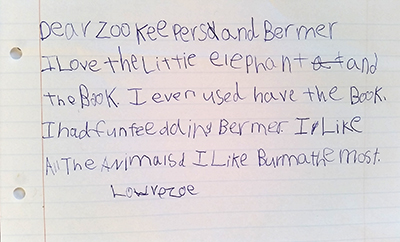 Dear Zoo Keepers and Bermer
I Love the Little elephant and
the Book. I even used have the Book.
I had fun feedding Bermer. I Like
All The Animalsd I Like Burma the most.
Love Zoe